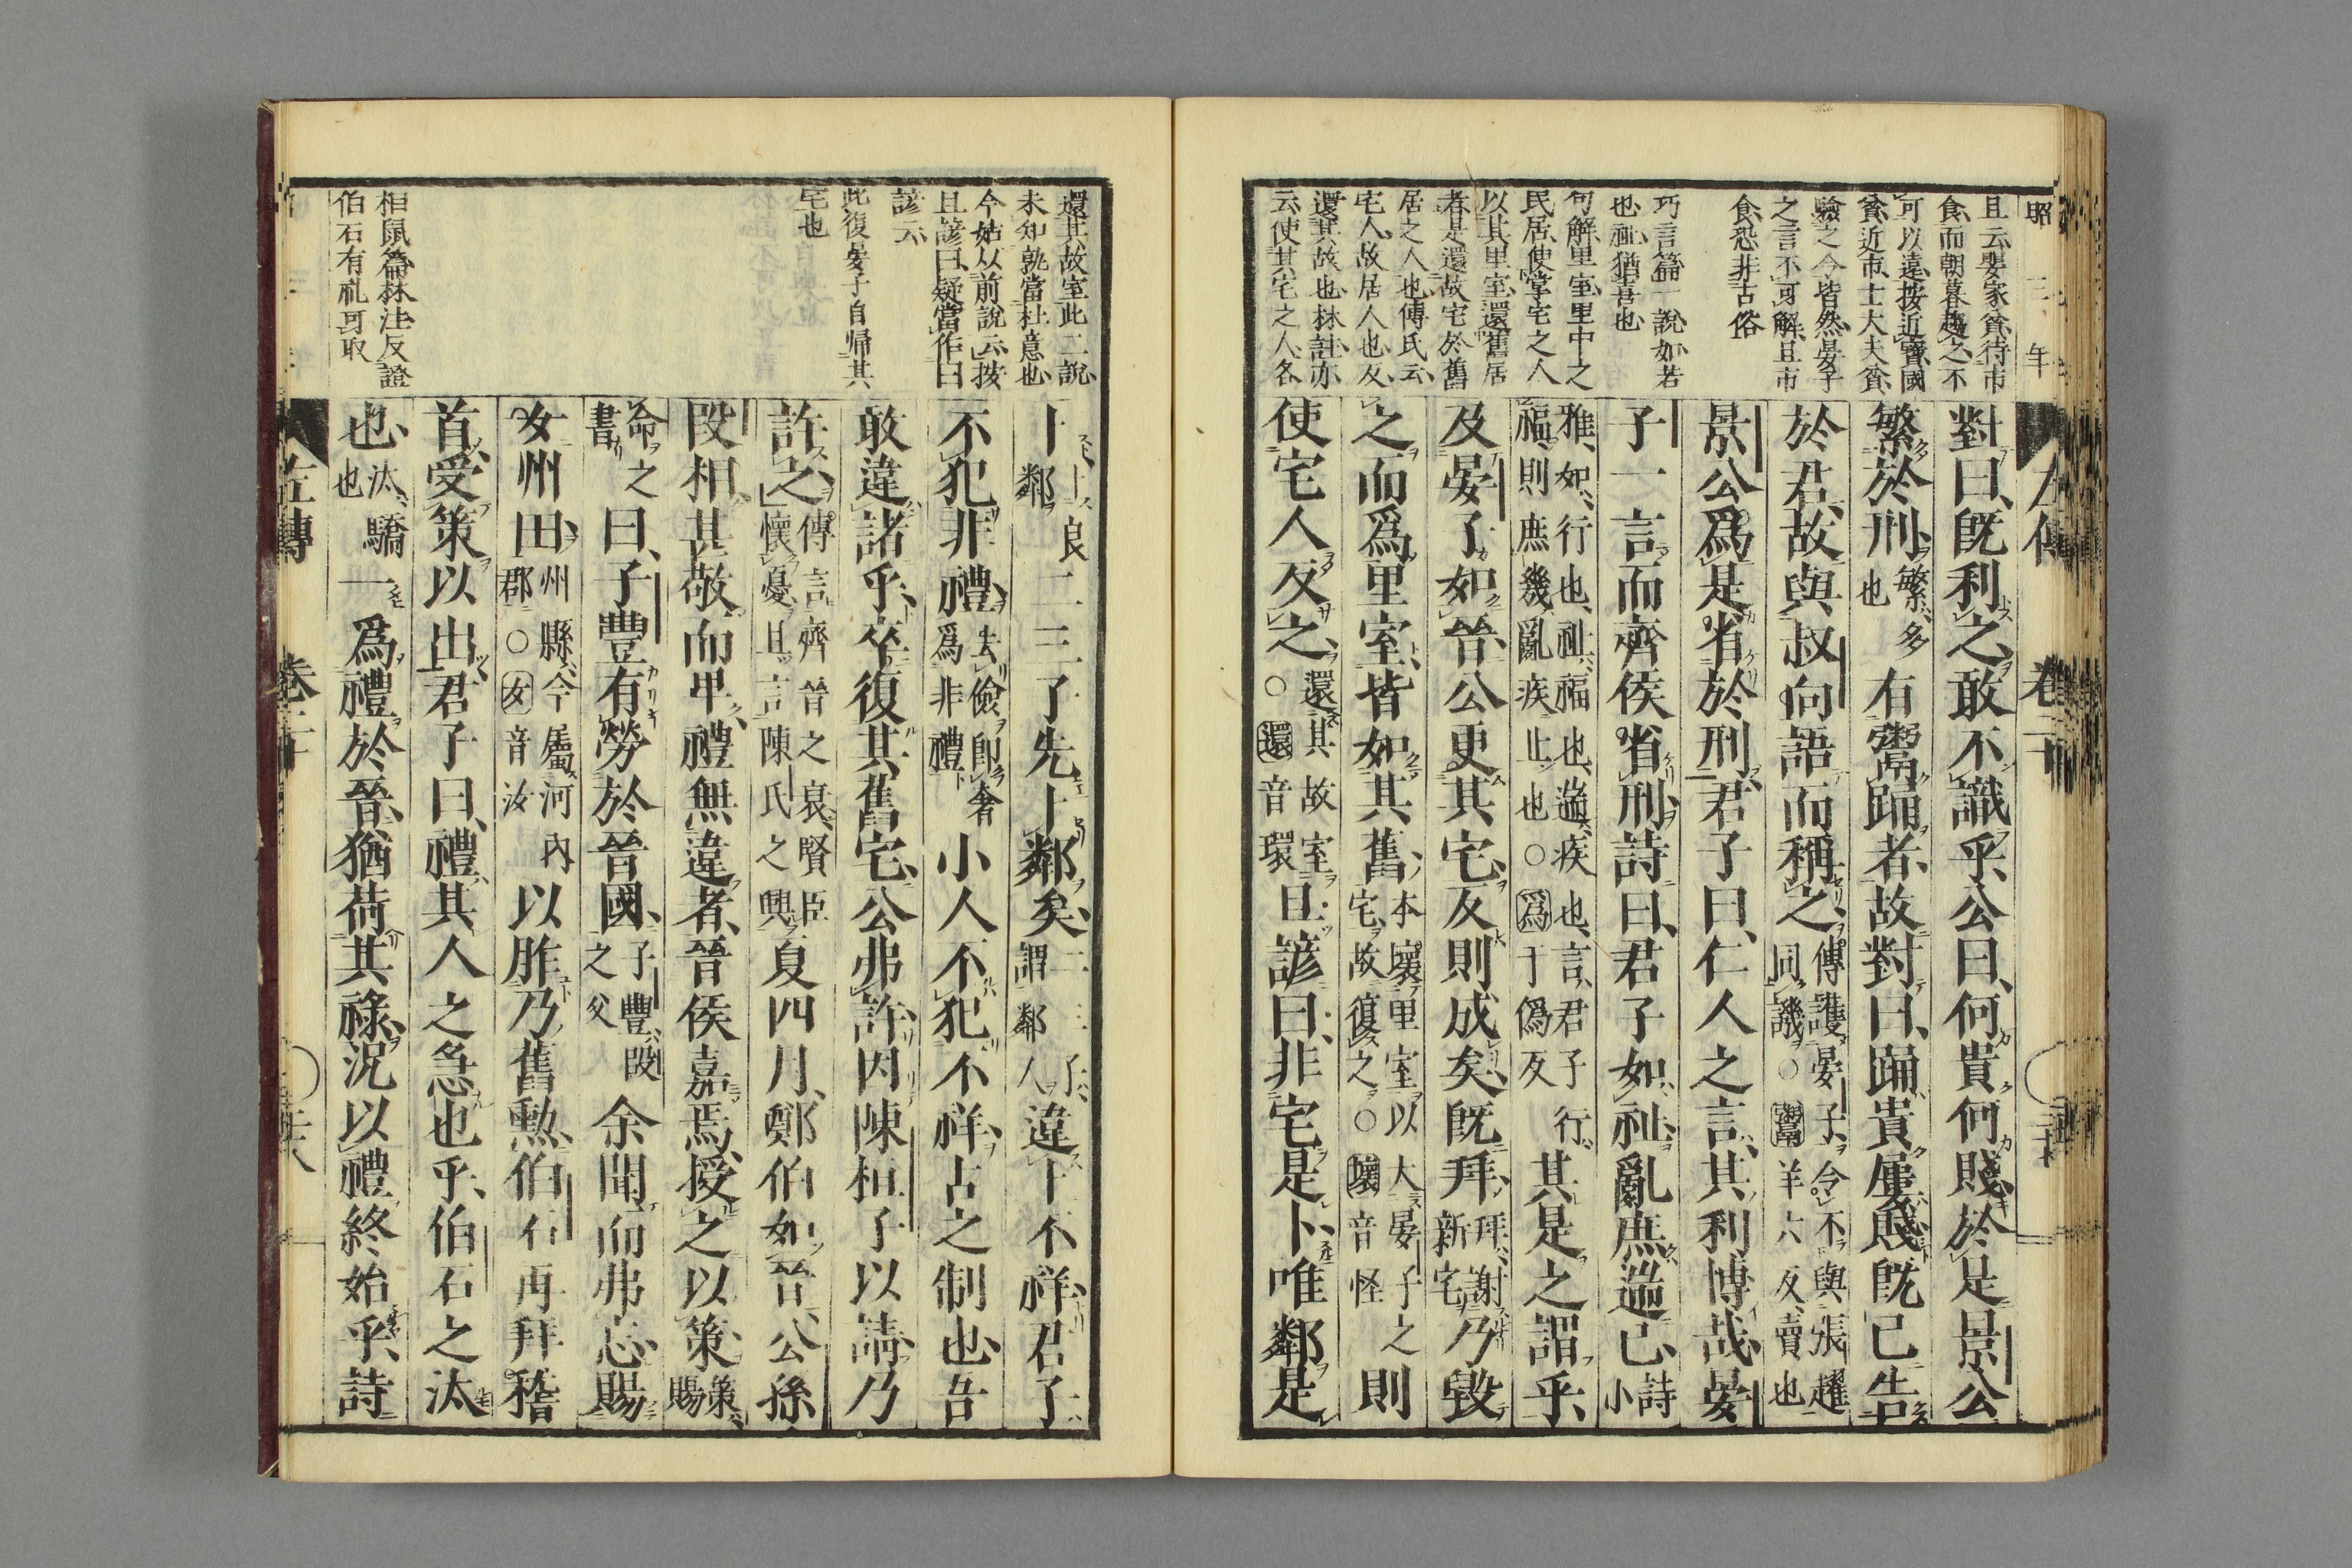 昭 三年
且云嬰家貧待市
食而朝暮趨之不
可以遠按近寶國
貧近市士大夫貧
驗之今皆然晏子
之言不可解且市
食恐非古俗
巧言篇一說如若
也祉猶喜也
句解里室里中之
民居使掌宅之人
以其里室還舊居
者是還故宅於舊
居之人也傅氏云
宅人故居人也反
還其故也林註亦
云使其宅之人各
左傳 卷二十
對曰既利之敢不識乎公曰何貴何賤於是景公
繁於刑繁多也有鬻踊者故對曰踊貴屨賤既已告
於君故與叔向語而稱之傳護晏子令不與張趯同譏○鬻羊六反賣也
景公爲是省於刑君子曰仁人之言其利博哉晏
子一言而齊侯省刑詩曰君子如祉亂庶遄已詩小
雅如行也祉福也遄疾也言君子行福則庶幾亂疾止也○爲于僞反其是之謂乎
及晏子如晉公更其宅反則成矣既拜拜謝新宅乃毀
之而爲里室皆如其舊本壞里室以大晏子之宅故復之○壞音怪則
使宅人反之還其故室○還音環且諺曰非宅是卜唯鄰是
還其故室此二說
未知孰當杜意也
今姑从前說云按
且諺曰疑當作曰
諺云
此復晏子自歸其
宅也
相鼠篇林注反證
伯石有礼可取
卜卜良鄰二三子先卜鄰矣二三子謂鄰人違卜不祥君子
不犯非禮去儉即奢爲非禮小人不犯不祥古之制也吾
敢違諸乎卒復其舊宅公弗許因陳桓子以請乃
許之傳言齊晉之衰賢臣懷憂且言陳氏之興夏四月鄭伯如晉公孫
段相甚敬而卑禮無違者晉侯嘉焉授之以策策賜
命之書曰子豐有勞於晉國子豐段之父余聞而弗忘賜
女州田州縣今屬河內郡○女音汝以胙乃舊勲伯石再拜稽
首受策以出君子曰禮其人之急也乎伯石之汰
也汰驕也一爲禮於晉猶荷其祿況以禮終始乎詩
左傳 卷二十